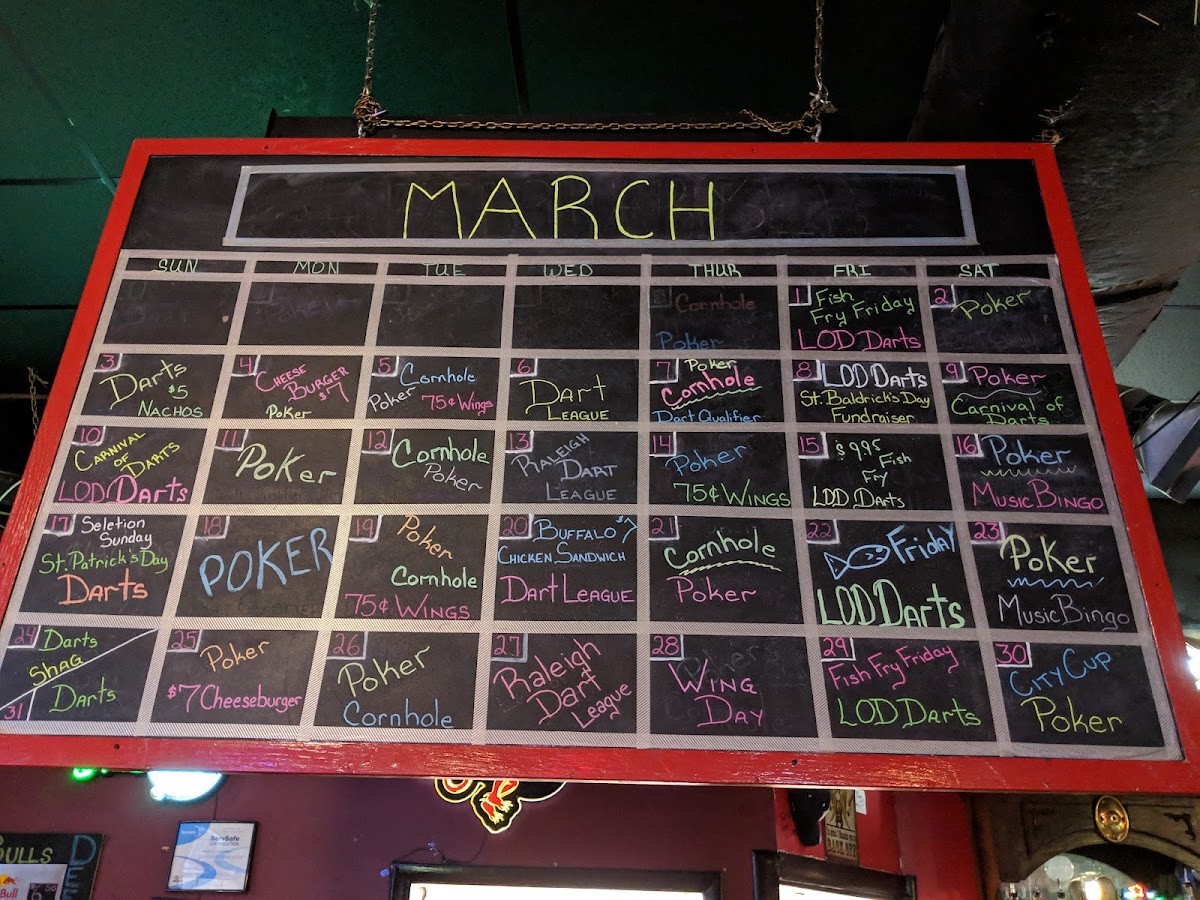 MARCH
SUN MON TUE WED THUR FRI SAT
Cornhole
Poker
1 Fish
Fry Friday
LOD Darts
2 Poker
3 Darts
$5
NACHOS
4 CHEESE
BURGER
$7
Poker
5 Cornhole
Poker
75¢ Wings
6 Dart
LEAGUE
7 Poker
Cornhole
Dart Qualifier
8 LOD Darts
St. Baldrick's Day
Fundraiser
9 Poker
Carnival of
Darts
10 CARNIVAL
OF
DARTS
LOD Darts
11 Poker
12 Cornhole
Poker
13 RALEIGH
DART
LEAGUE
14 Poker
75¢ WINGS
15 $9.95
Fish
Fry
LOD Darts
16 Poker
MUSIC BINGO
17 Seletion
Sunday
St. Patrick's Day
Darts
18 POKER
19 Poker
Cornhole
75¢ WINGS
20 BUFFALO $7
CHICKEN SANDWICH
DART LEAGUE
21 Cornhole
Poker
22 Friday
LOD Darts
23 Poker
Music Bingo
24 Darts
SHAG
31 Darts
25 Poker
$7 Cheeseburger
26 Poker
Cornhole
27 Raleigh
Dart
League
28 Poker
WING
DAY
29 Fish Fry Friday
LOD Darts
30 CITY CUP
Poker
BULLS
Red Bull
ServSafe
CERTIFICATION